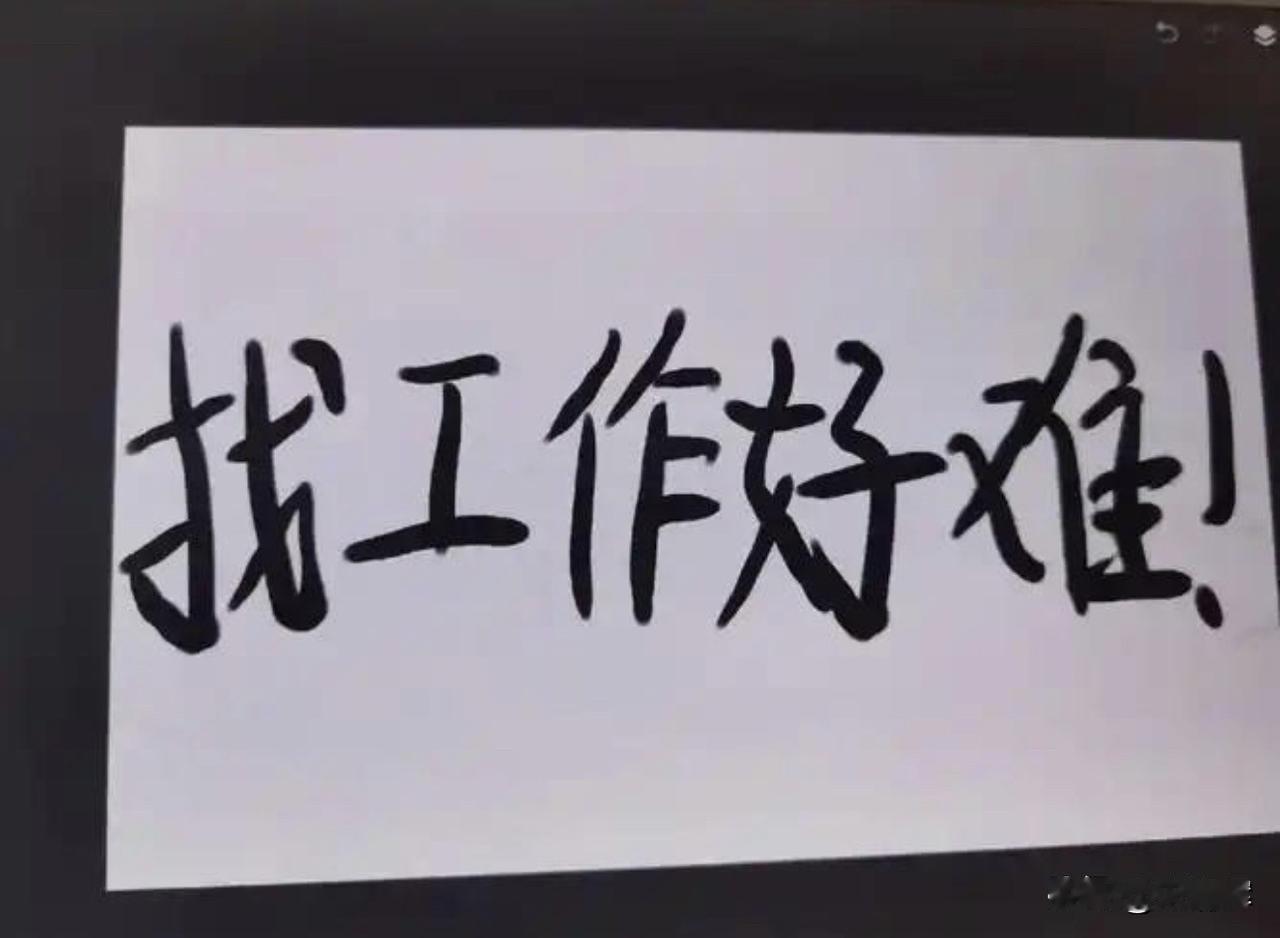 找工作好难!